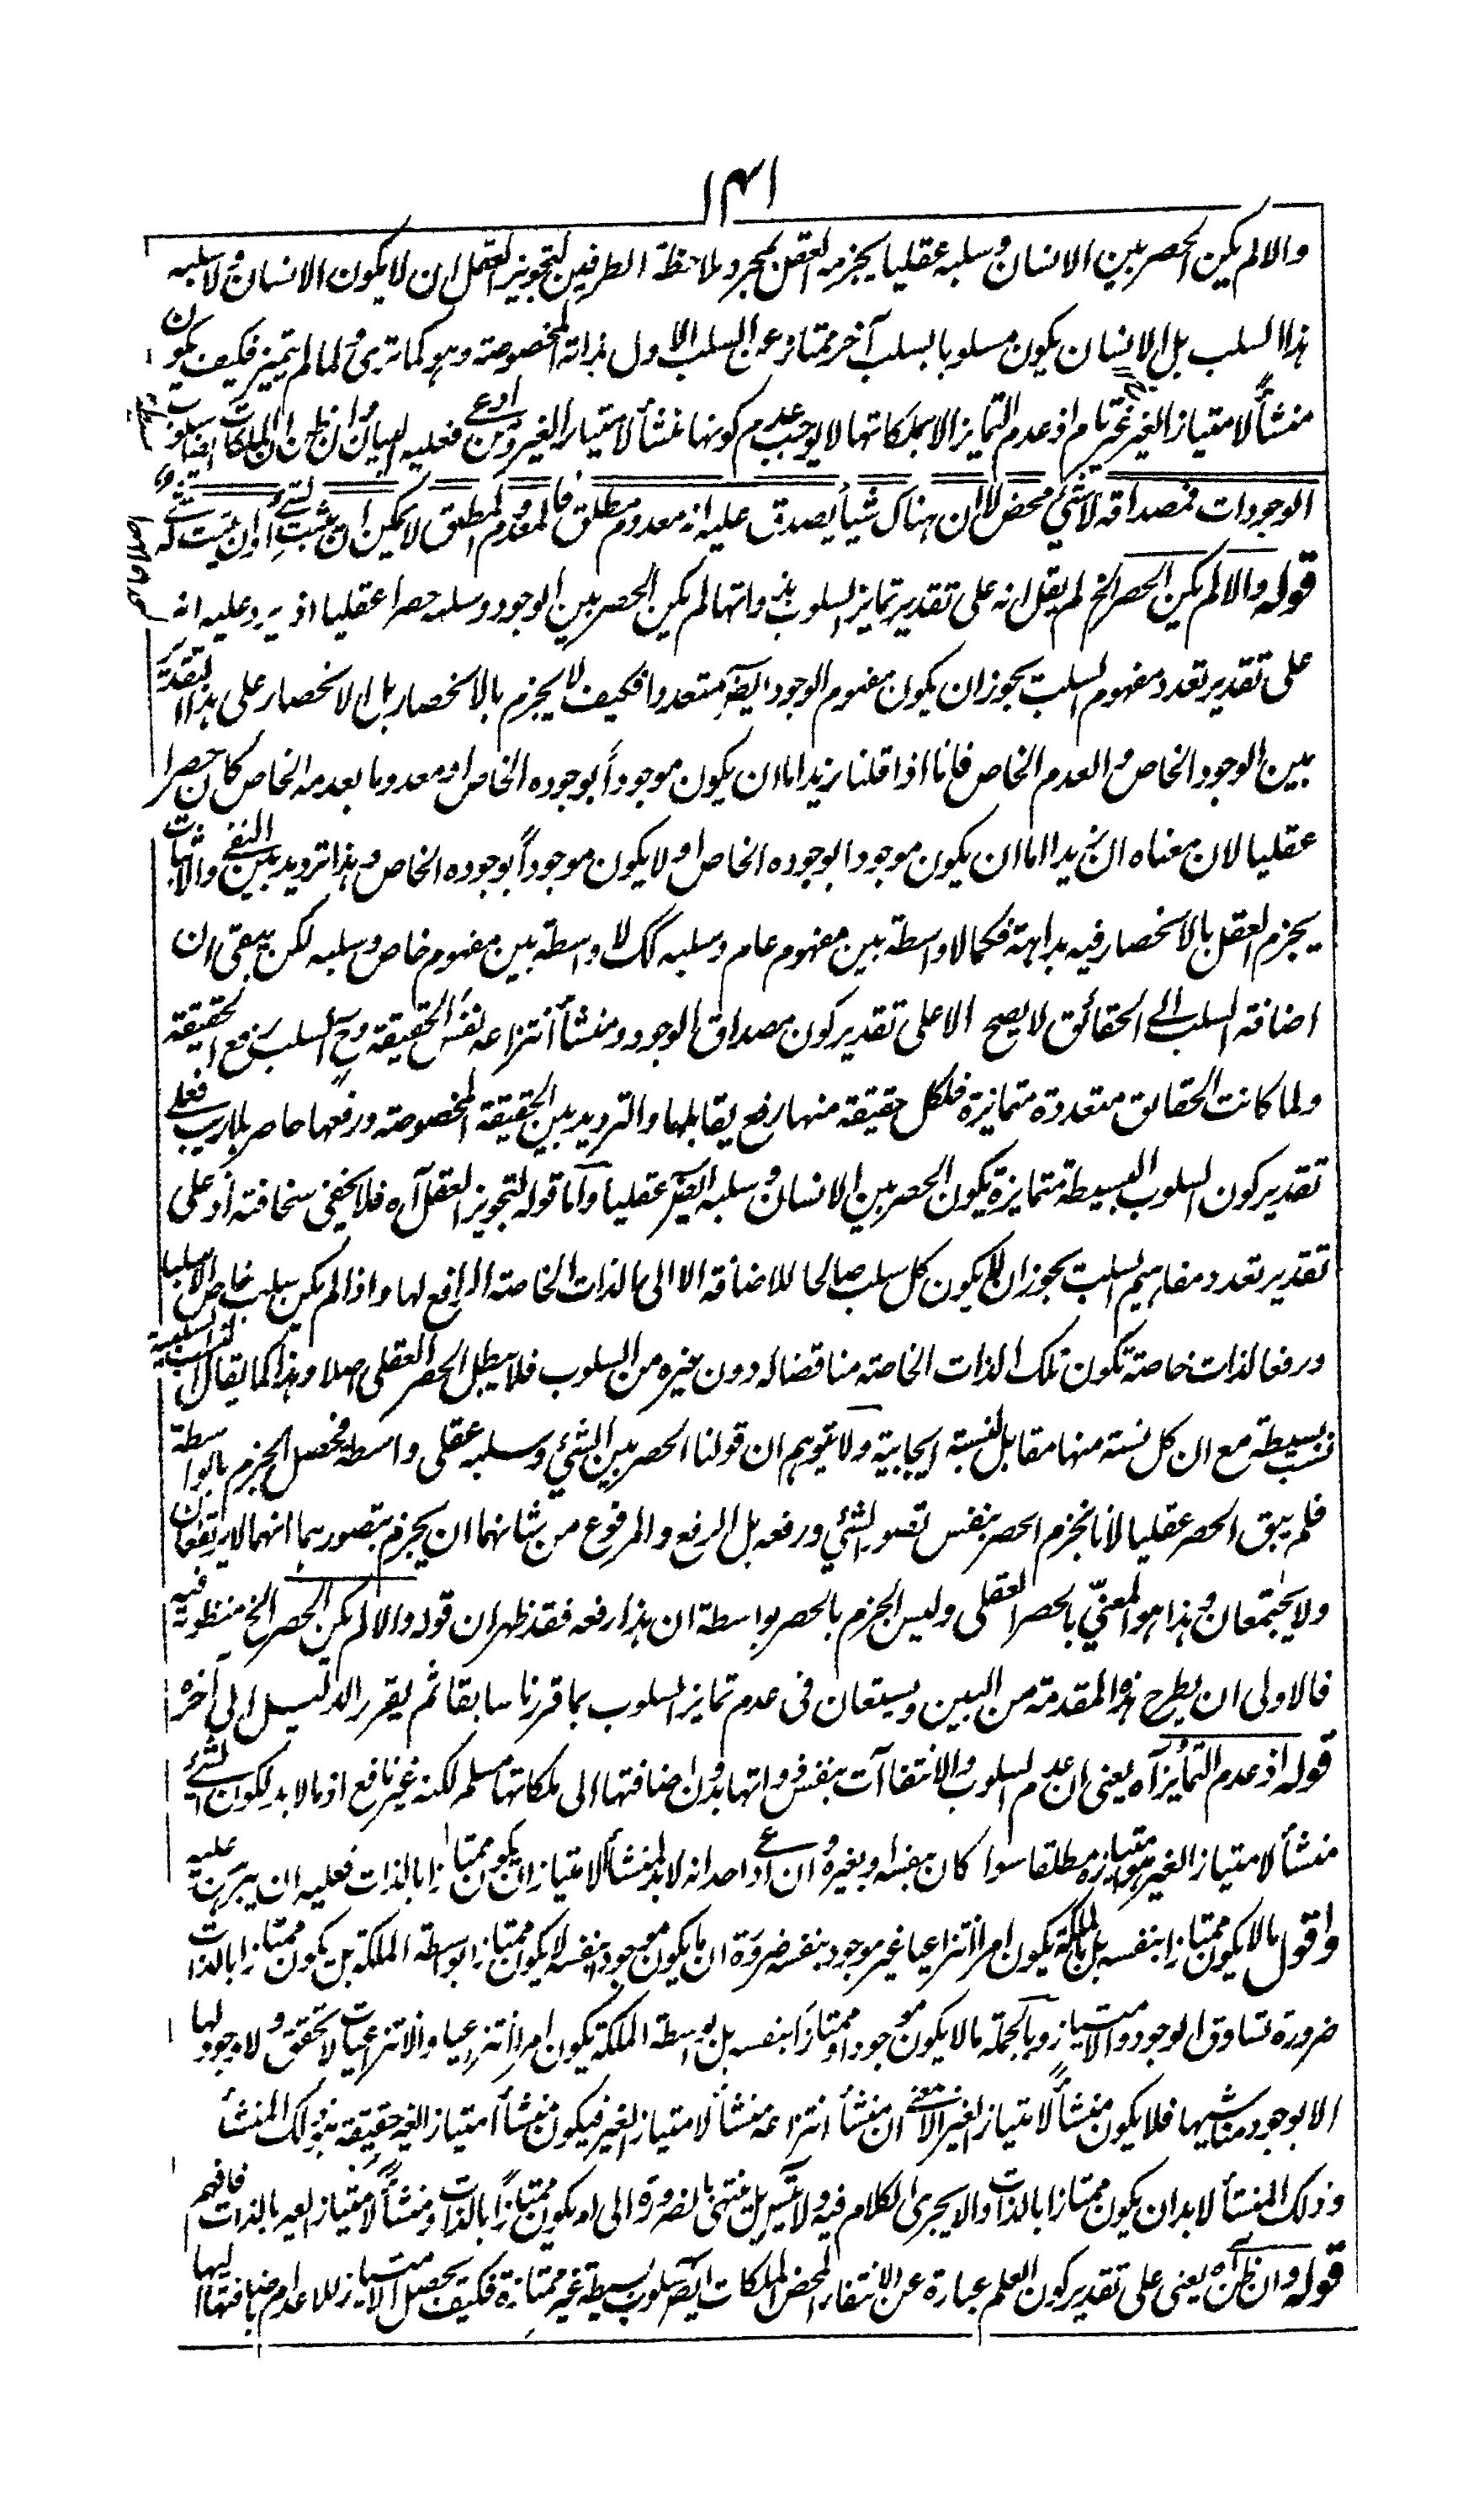 ١٣١
والا لم يكن الحصر بين الانسان وسلبه عقليا يجزم به العقل بمجرد ملاحظة الطرفين لتجويز العقل ان لا يكون الانسان ولا سلبه
هذا السلب بل الانسان يكون مسلوبا بسلب آخر ممتاز عن السلب الاول بذاته المخصوصة وهو كما ترى ولما لم يتميز فكيف يكون
منشأً لامتياز الغير غير تام اذ عدم التمايز الا بملكاتها لا يوجب عدم كونها منشأ لامتياز الغير ومن ادعى فعليه البيان وان ظن ان الملكات ايضا سلوب
الوجودات فمصداقه لا شيء محض لا ان هناك شيأ يصدق عليه انه معدوم مطلق فالمعدوم المطلق لا يمكن ان يثبت لشيء او ان يثبت له شيء
قوله والا لم يكن الحصر الخ لم يقل انه على تقدير تمايز السلوب بذواتها لم يكن الحصر بين الوجود وسلبه حصرا عقليا اذ يرد عليه انه
على تقدير تعدد مفهوم السلب يجوز ان يكون مفهوم الوجود ايضً متعددا فكيف لا يجزم بالانحصار بل الانحصار على هذا التقدير
بين الوجود الخاص والعدم الخاص فانا اذا قلنا زيد اما ان يكون موجوداً بوجوده الخاص او معدوما بعدمه الخاص كان حصرا
عقليا لان معناه ان زيدا اما ان يكون موجودا بوجوده الخاص او لا يكون موجوداً بوجوده الخاص وهذا ترديد بين النفي والاثبات
يجزم العقل بالانحصار فيه بداهة فكما لا واسطة بين مفهوم عام وسلبه كك لا واسطة بين مفهوم خاص وسلبه لكن يبقى ان
اضافة السلب الى الحقائق لا يصح الا على تقدير كون مصداق الوجود ومنشأ انتزاعه نفس الحقيقة وح السلب رفع الحقيقة
ولما كانت الحقائق متعددة متمايزة فلكل حقيقة منها رفع يقابلها والترديد بين الحقيقة المخصوصة ورفعها حاصر بلا ريب فعلى
تقدير كون السلوب البسيطة متمايزة يكون الحصر بين الانسان وسلبه ايضً عقلياً واما قوله لتجويز العقل آه فلا يخفى سخافته اذ على
تقدير تعدد مفاهيم السلب يجوز ان لا يكون كل سلب صالحا للاضافة الا الى الذات الخاصة الرافع لها واذا لم يكن سلب خاص الا سلبا
ورفعا لذات خاصة تكون تلك الذات الخاصة مناقضا له دون غيره من السلوب فلا يبطل الحصر العقلي اصلا وهذا كما يقال ان النسب السلبية
نسب بسيطة مع ان كل نسبة منها مقابل لنسبة ايجابية ولا يتوهم ان قولنا الحصر بين الشيء وسلبه عقلي واسطة فحصل الجزم بالواسطة
فلم يبق الحصر عقليا لانا نجزم الحصر بنفس تصور الشيء ورفعه بل الرفع والمرفوع من شانهما ان يجزم بتصورهما انهما لا يرتفعان
ولا يجتمعان وهذا هو المعنيّ بالحصر العقلي وليس الجزم بالحصر بواسطة ان هذا رفعه فقد ظهر ان قوله والا لم يكن الحصر الخ منظور فيه
فالاولى ان يطرح هذه المقدمة من البين ويستعان في عدم تمايز السلوب بما قررنا سابقا ثم يقرر الدليل الى آخره
قوله اذ عدم التمايز آه يعني ان عدم السلوب والانتفاآت بنفس ذواتها بدون اضافتها الى ملكاتها مسلم لكنه غير نافع اذ ما لا بد لكون الشيء
منشأ لامتياز الغير هو امتيازه مطلقا سواء كان بنفسه او بغيره وان ادعى احد انه لا بد لمنشأ الامتياز ان يكون ممتازا بالذات فعليه ان يبرهن عليه
واقول ما لا يكون ممتازا بنفسه بل بالملكة يكون امرا انتزاعيا غير موجود بنفسه ضرورة ان ما يكون موجودا بنفسه لا يكون ممتازا بواسطة الملكة بل يكون ممتازا بالذات
ضرورة تساوق الوجود والامتياز وبالجملة ما لا يكون موجودا وممتازا بنفسه بل بواسطة الملكة يكون امرا انتزاعيا والانتزاعيات لا تحقق ولا وجود لها
الا بوجود مناشيها فلا يكون منشأً لامتياز الغير الا بمعنى ان منشأ انتزاعه منشأ لامتياز الغير فيكون منشأ امتياز الغير حقيقة هو ذلك المنشأ
وذلك المنشأ لا بد ان يكون ممتازا بالذات والا يجري الكلام فيه ولا يتسلسل بل ينتهي بالضرورة الى ما يكون ممتازاً بالذات ومنشأً لامتياز الغير بالذات فافهم
قوله وان ظن آه يعني على تقدير كون العلم عبارة عن الانتفاء المحض الملكات ايضً سلوب بسيطة غير ممتازة فكيف يحصل الامتياز للاعدام باضافتها اليها